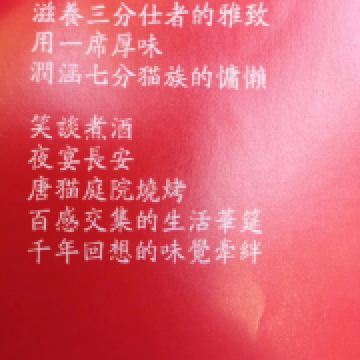 滋養三分仕者的雅致
用一席厚味
潤涵七分猫族的慵懶
笑談煮酒
夜宴長安
唐猫庭院燒烤
百感交集的生活華筵
千年回想的味覺牽絆